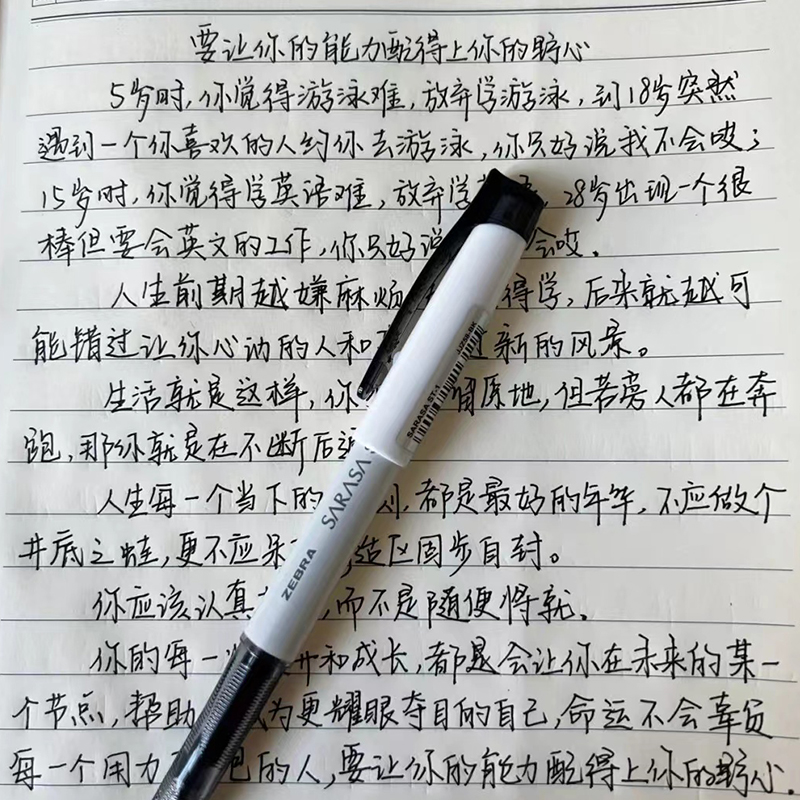 要让你的能力配得上你的野心
5岁时,你觉得游泳难,放弃学游泳,到18岁突然
遇到一个你喜欢的人约你去游泳,你只好说我不会哎;
15岁时,你觉得学英语难,放弃学 28岁出现一个很
棒但要会英文的工作,你只好说 会哎.
人生前期越嫌麻烦 得学,后来就越可
能错过让你心动的人和 新的风景。
生活就是这样,你 留原地,但若旁人都在奔
跑,那你就是在不断后退
人生每一个当下的 刻,都是最好的年华,不应做个
井底之蛙,更不应呆 适区固步自封。
你应该认真 ,而不是随便将就.
你的每一 和成长,都是会让你在未来的某一
个节点,帮助 成为更耀眼夺目的自己,命运不会辜负
每一个用力 的人,要让你的能力配得上你的野心.
ZEBRA SARASA
SARASA ST-1
JJZ58-BK